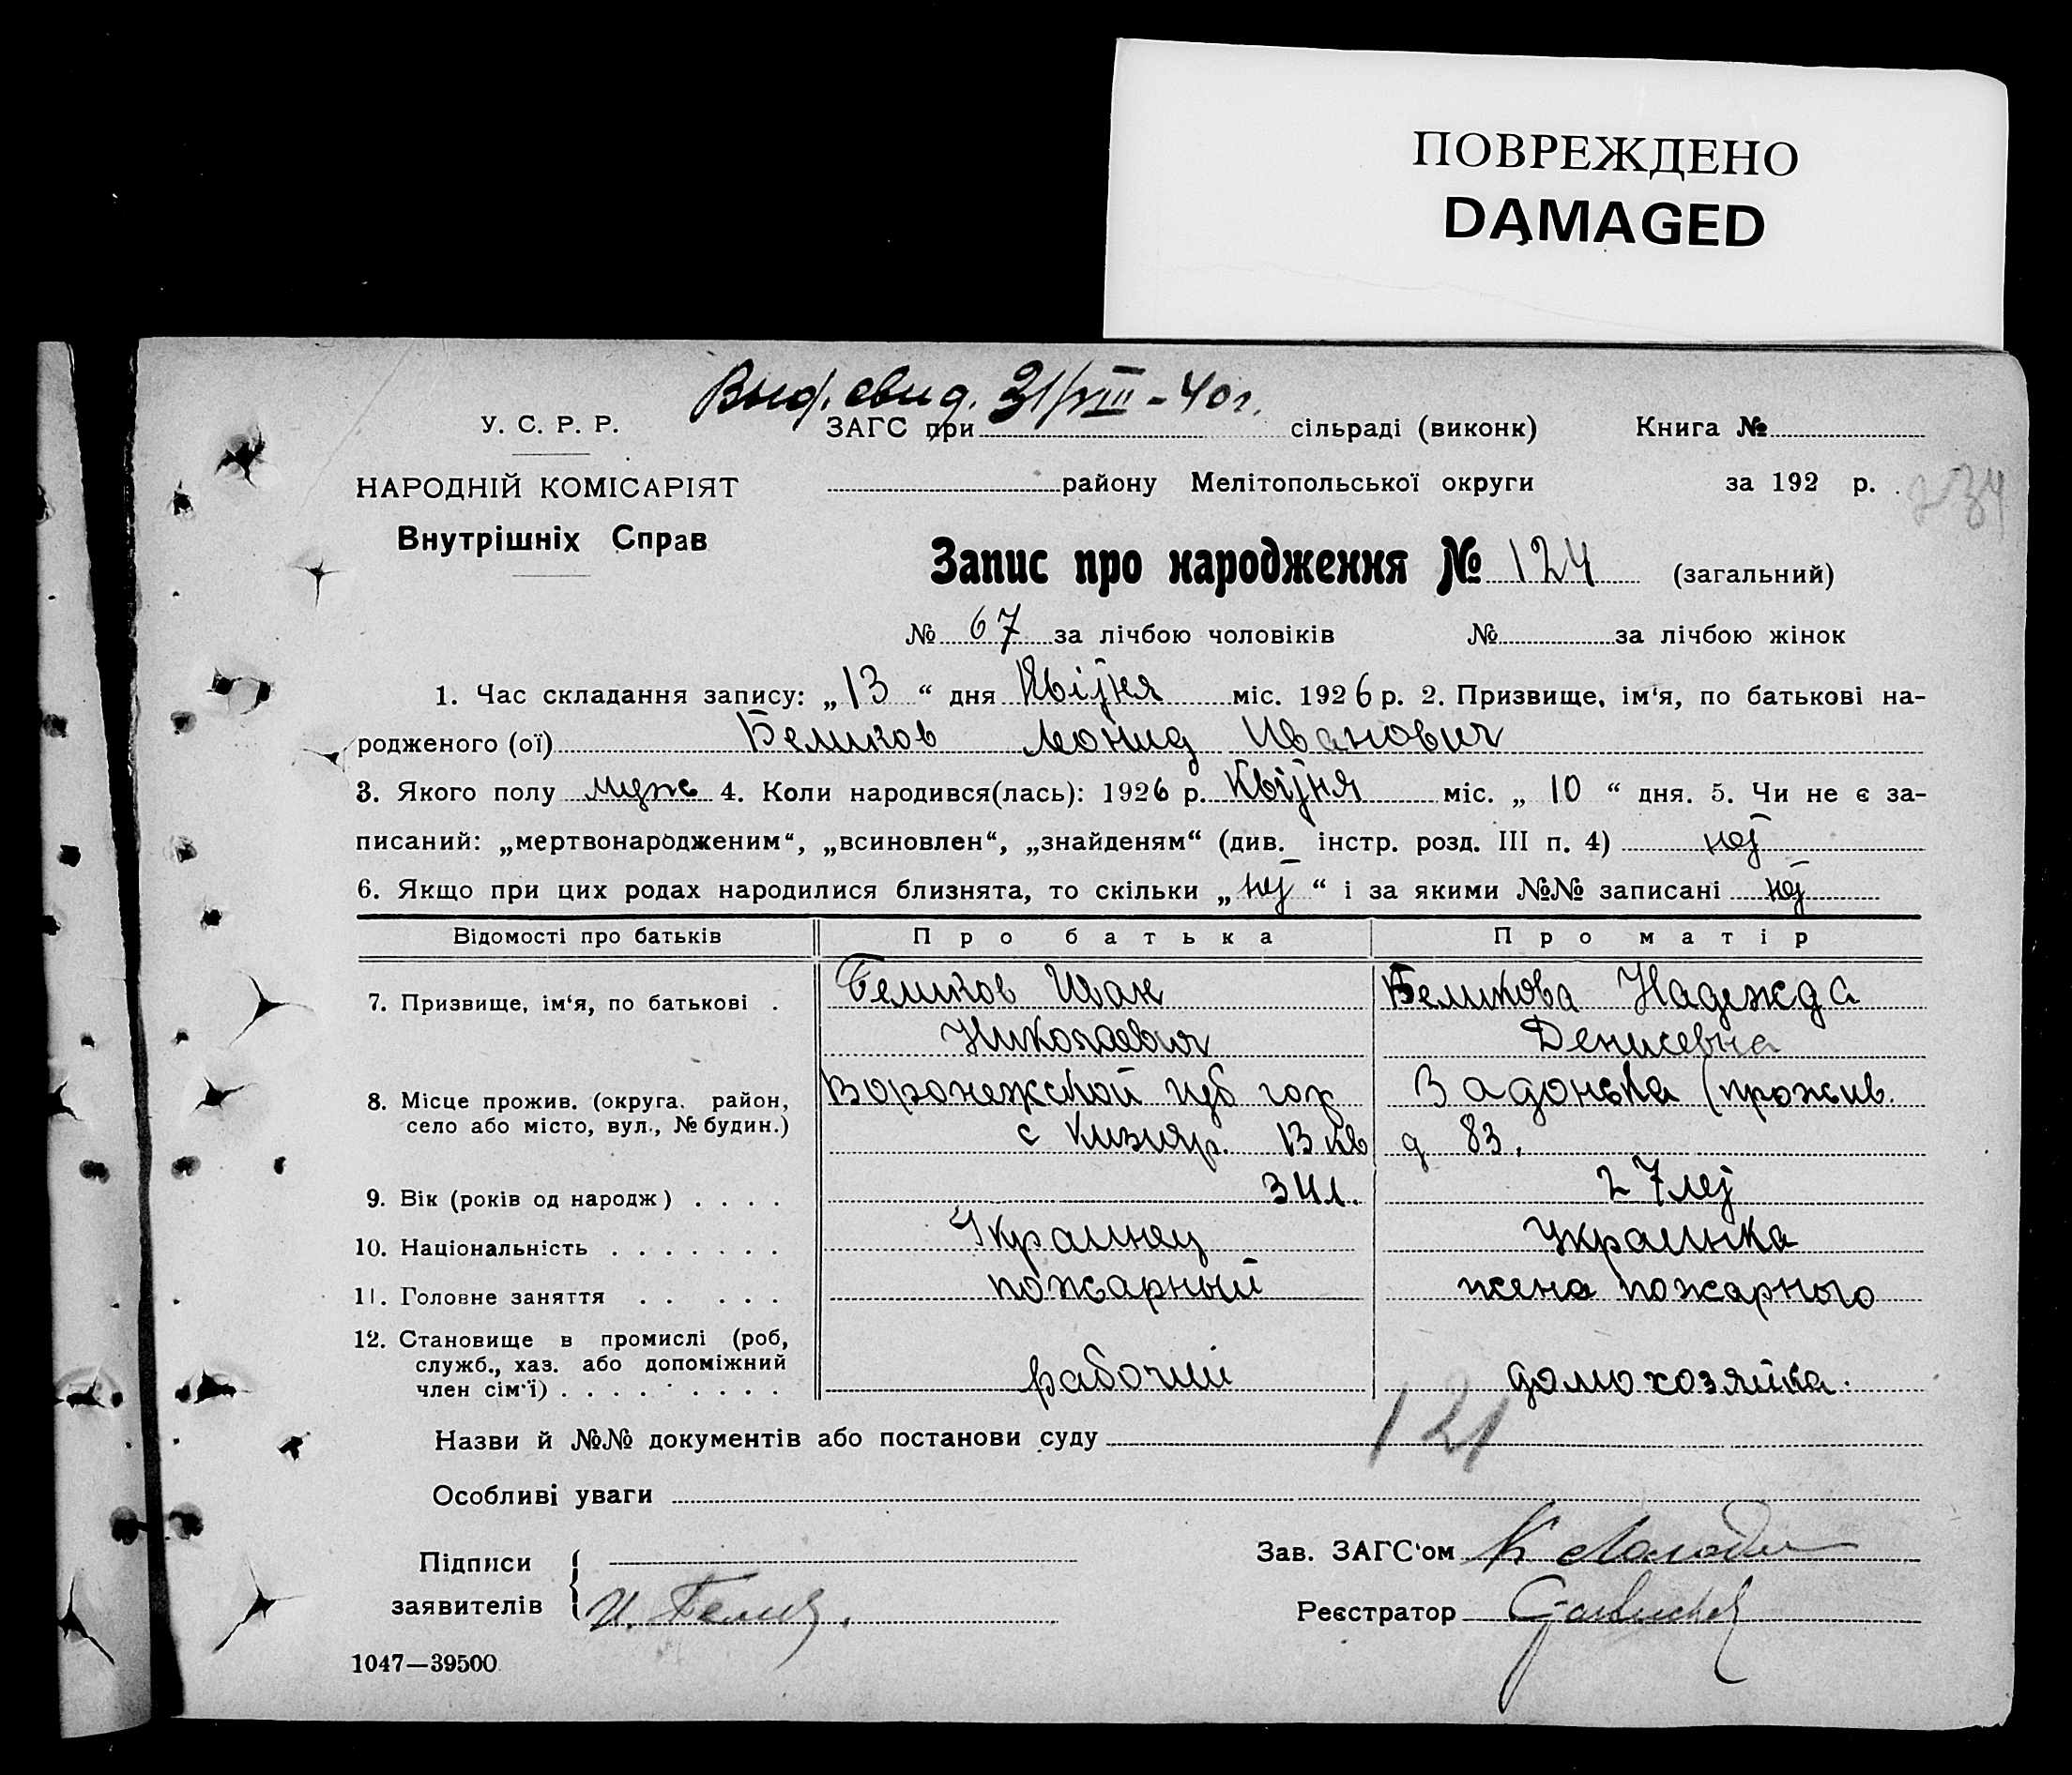 ПОВРЕЖДЕНО
DAMAGED
Выд. свид. 31/VIII - 40 г.
У. С. Р. Р.
ЗАГС при сільраді (виконк) Книга №
НАРОДНІЙ КОМІСАРІЯТ
району Мелітопольської округи за 192 р. 234
Внутрішніх Справ
Запис про народження № 124 (загальний)
№ 67 за лічбою чоловіків № за лічбою жінок
1. Час складання запису: „13“ дня Квітня міс. 1926 р. 2. Призвище, ім‘я, по батькові на-
родженого (ої) Беликов Леонид Иванович
3. Якого полу муж 4. Коли народився(лась): 1926 р. Квітня міс. „10“ дня. 5. Чи не є за-
писаний: „мертвонародженим“, „всиновлен“, „знайденям“ (див. інстр. розд. III п. 4) нет
6. Якщо при цих родах народилися близнята, то скільки „нет“ і за якими №№ записані нет
Відомості про батьків Про батька Про матір
7. Призвище, ім‘я, по батькові . Беликов Иван Беликова Надежда
Николаевич Денисевна
8. Місце прожив. (округа. район, Воронежской губ гор Задонска (прожив.
село або місто, вул., № будин.) с Кизияр. 13 кв д 83.
9. Вік (років од народж) . . . . 34 л. 27 лет
10. Національність . . . . . . . Украинец Украинка
11. Головне заняття . . . . . пожарный жена пожарного
12. Становище в промислі (роб,
служб., хаз. або допоміжний
член сім‘ї) . . . . . . . . . рабочий домохозяйка.
Назви й №№ документів або постанови суду 121
Особливі уваги
Підписи
Зав. ЗАГС‘ом
заявителів И. Белик.
Реєстратор
1047—39500